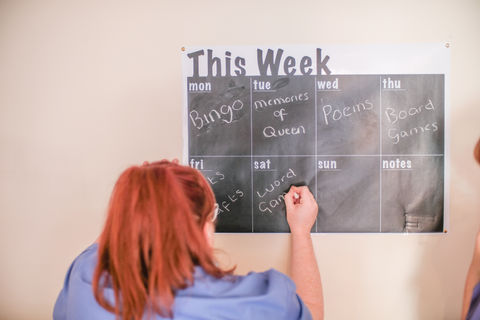 This Week
mon
tue
wed
thu
Bingo
memories
of
Queen
Poems
Board
Games
fri
sat
sun
notes
word